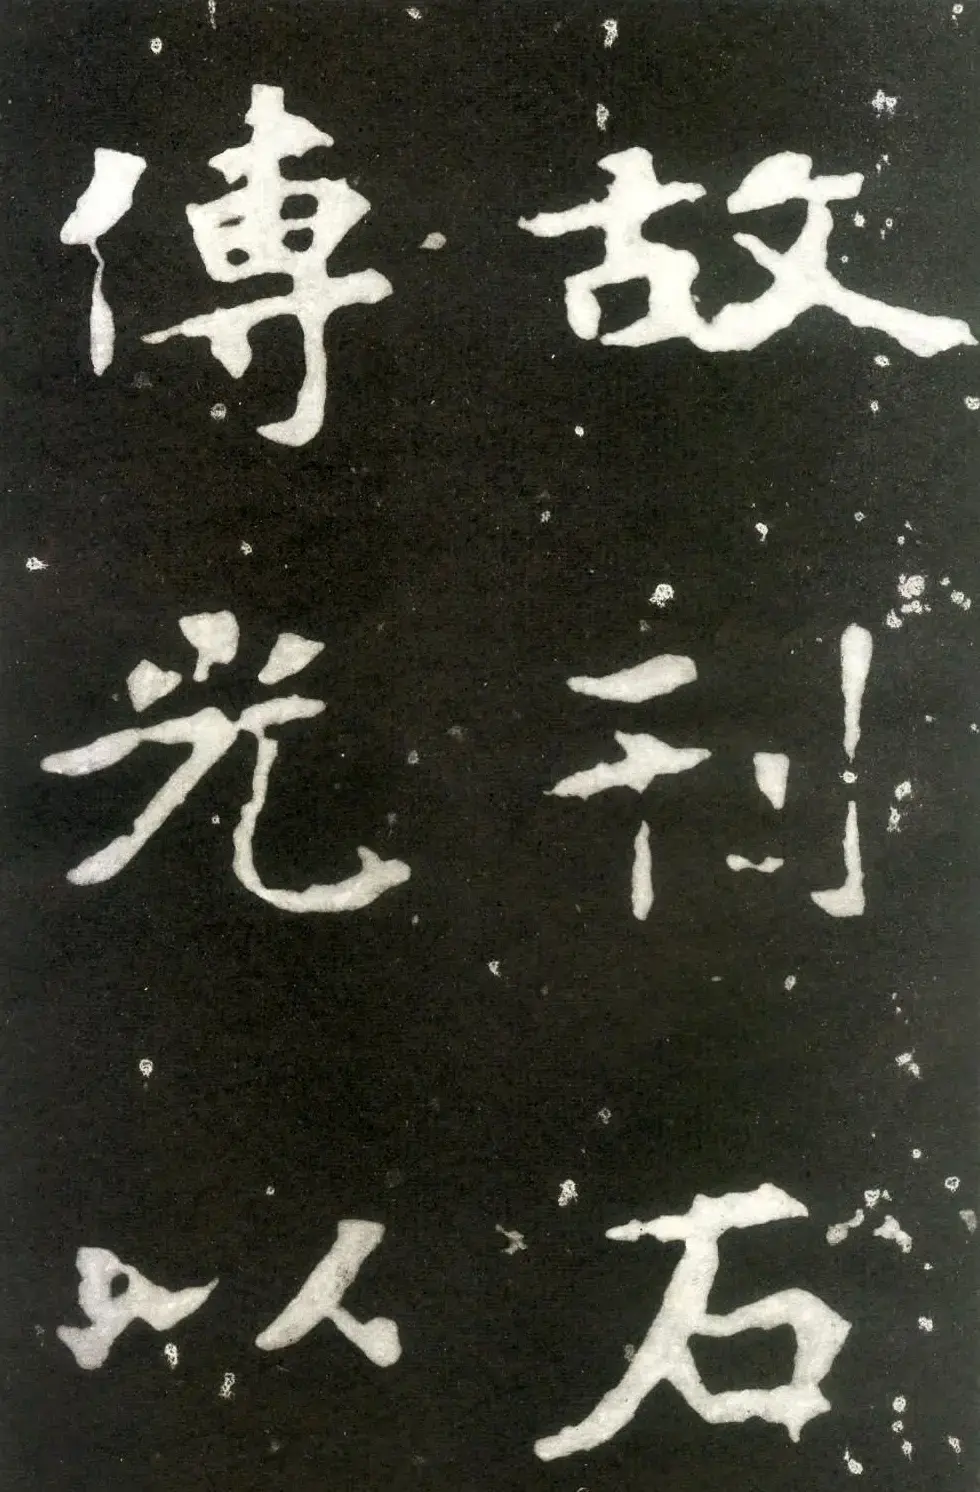 故刊石
傳光以